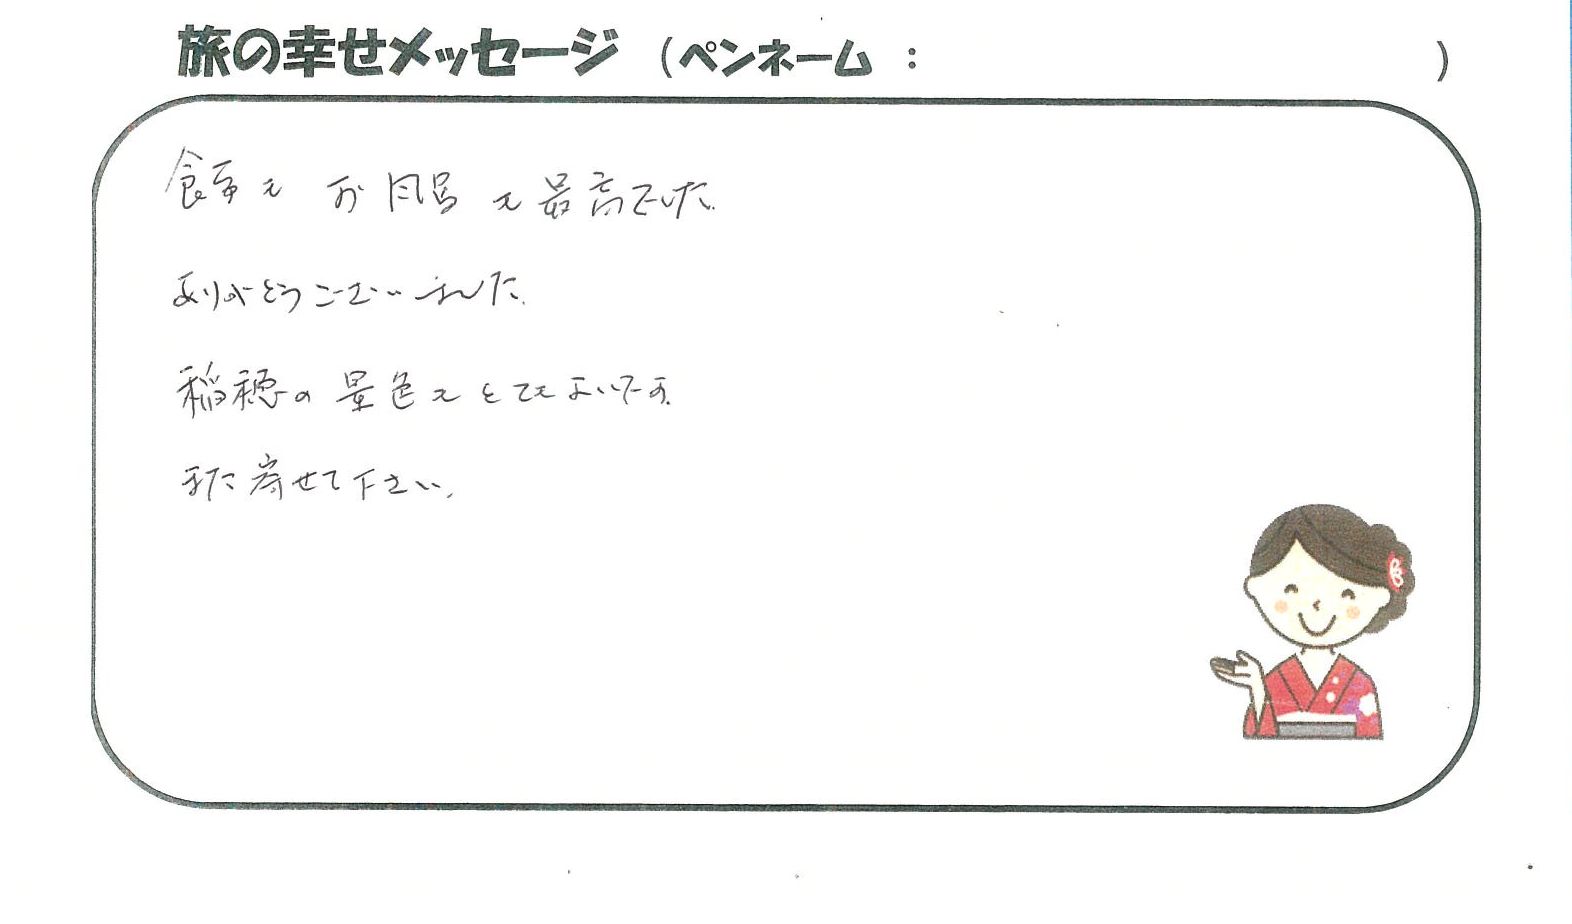 旅の幸せメッセージ (ペンネーム : )
食事も お風呂も最高でした.
ありがとうございました.
稲穂の景色もとてもよいです.
また寄せて下さい.